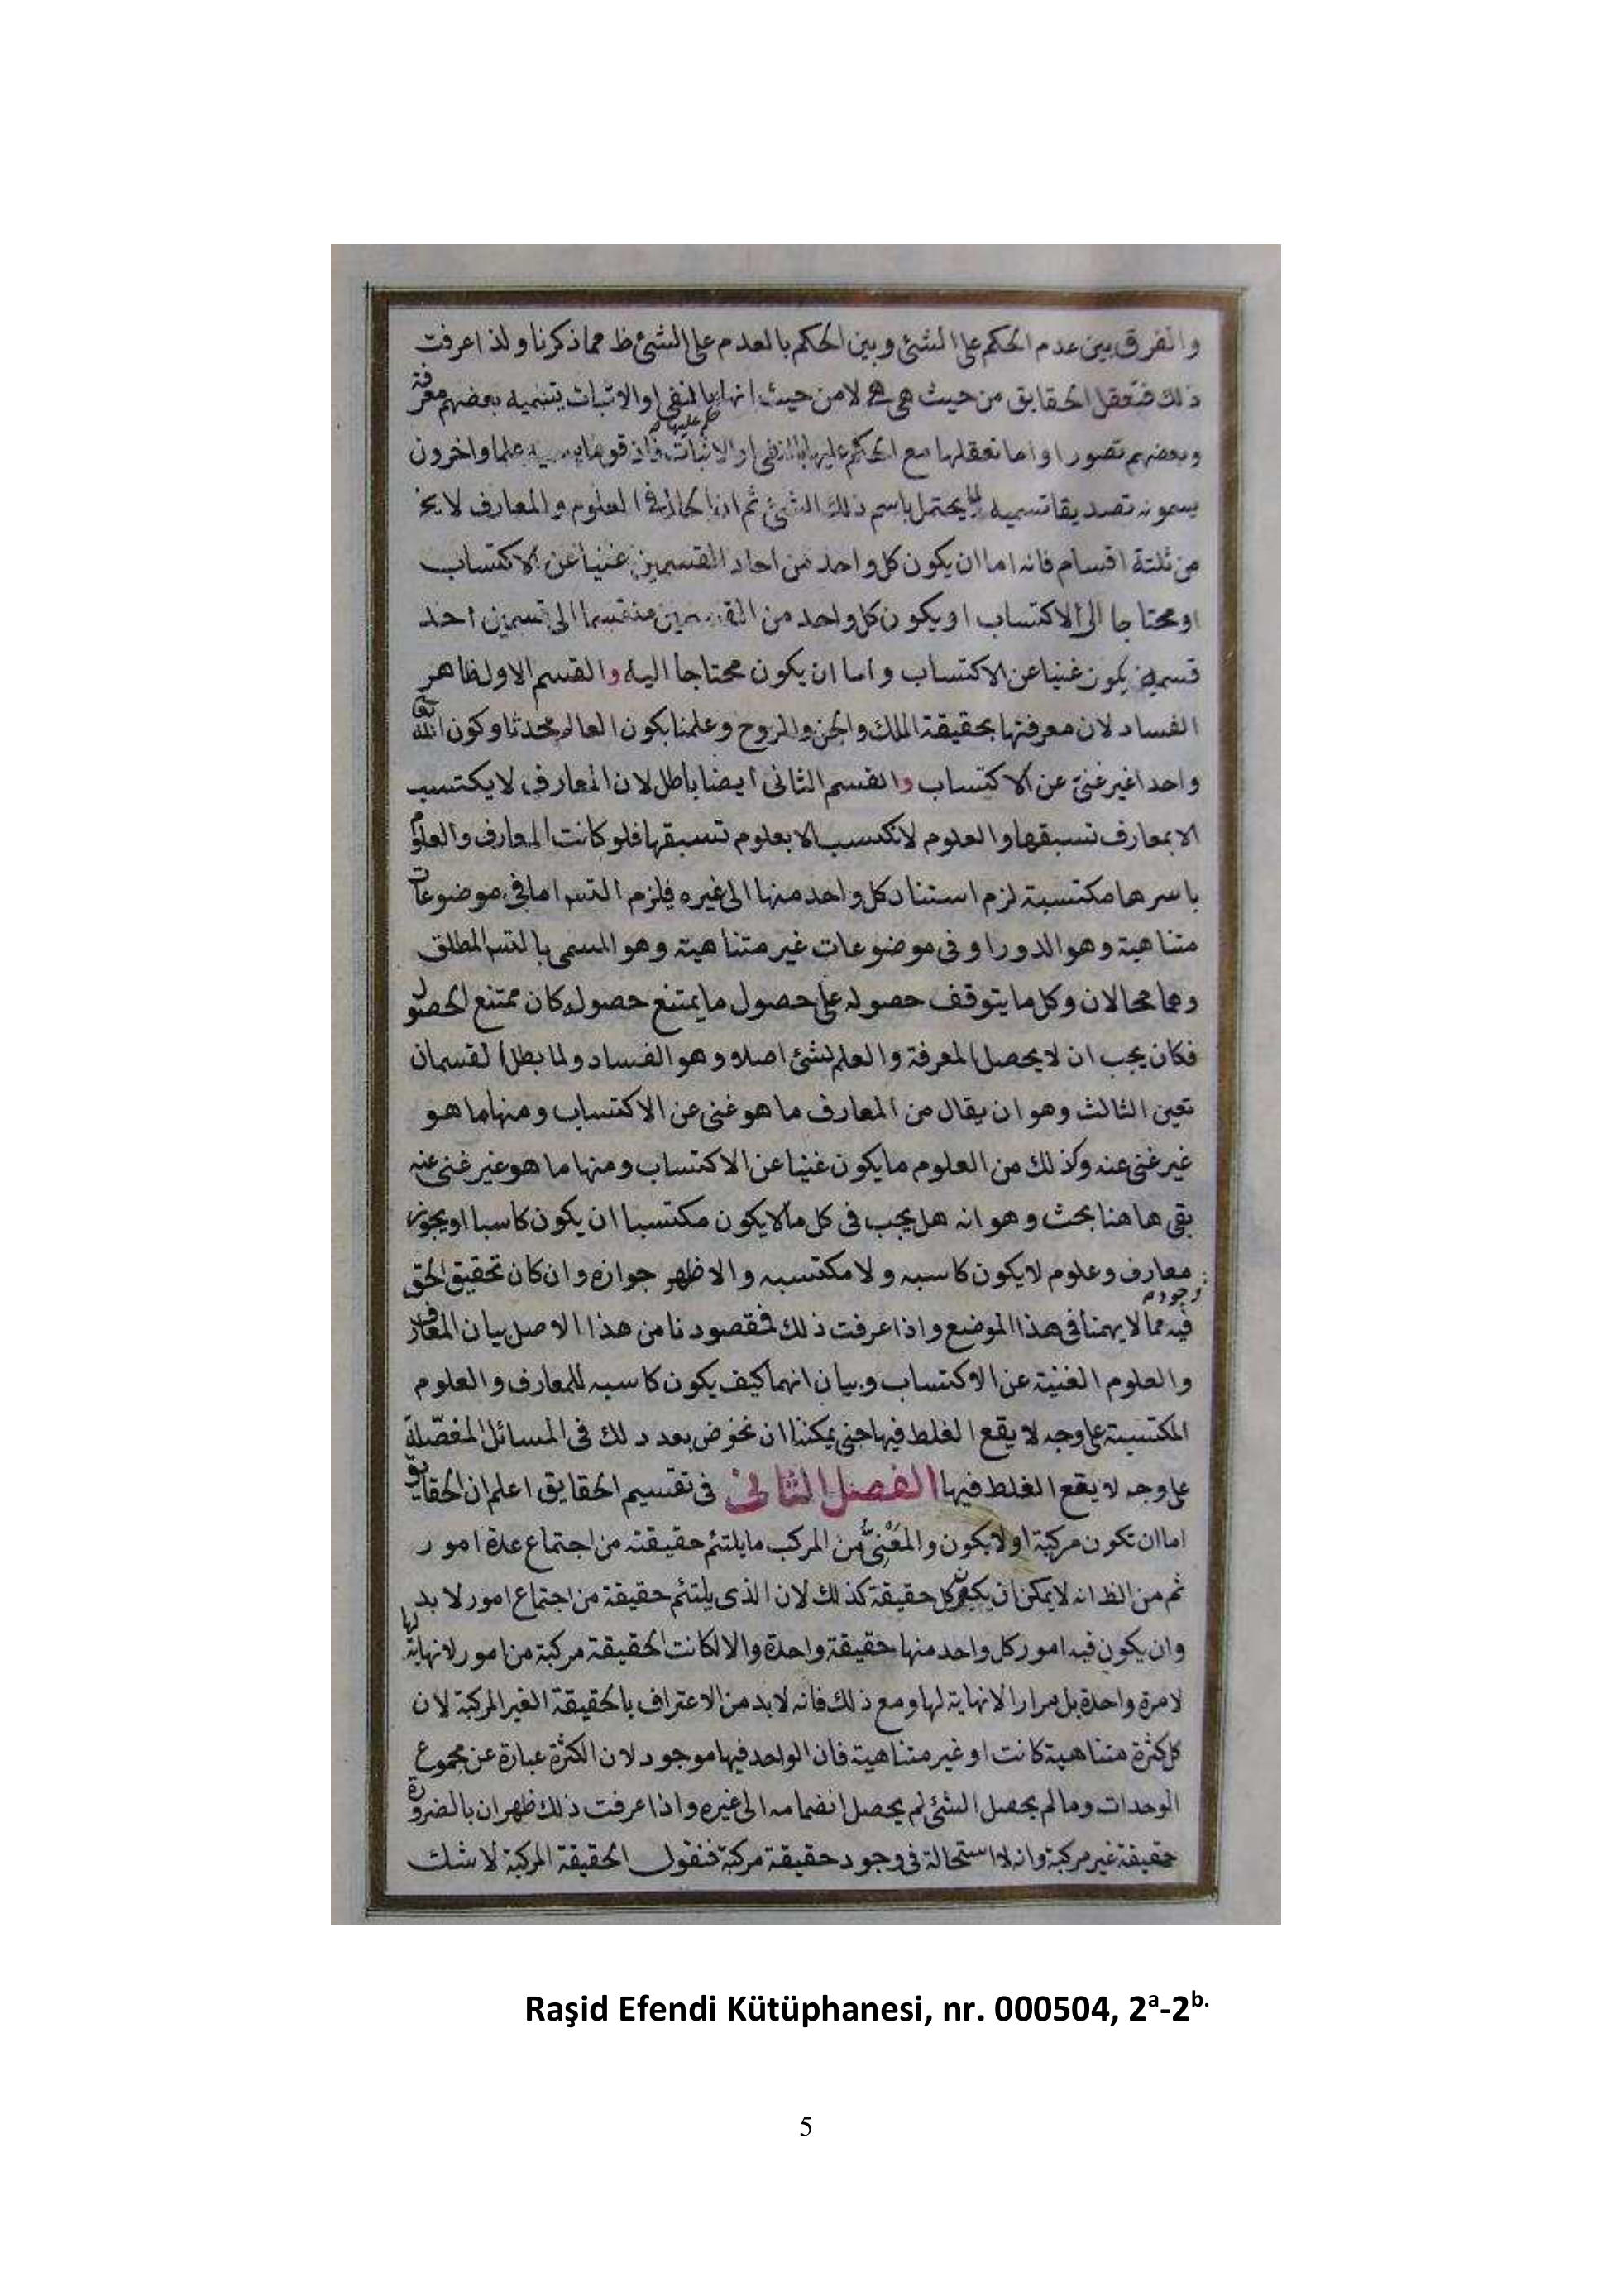 والفرق بين عدم الحكم على الشئ وبين الحكم بالعدم على الشئ ظ مما ذكرنا ولذا عرفت
ذلك فتعقل الحقايق من حيث هي هي لا من حيث انها بالنفى او الاثبات يتسميه بعضهم معرفة
حكم عليها
وبعضهم تصورا واما تعقلها مع الحكم عليها بالنفى او الاثبات فان قوما علما واخرون
يسمونه تصديقا تسمية لما يحتمل باسم ذلك الشئ ثم ان الحال فى العلوم والمعارف لا يخ
من ثلثة اقسام فانه اما ان يكون كل واحد من احاد القسمين غنيا عن الاكتساب
او محتاجا الى الاكتساب او يكون كل واحد من القسمين منقسما الى قسمين احد
قسميه يكون غنيا عن الاكتساب واما ان يكون محتاجا اليه والقسم الاول ظاهر
الفساد لان معرفتها بحقيقة الملك والجن والروح وعلمنا بكون العالم محدثا وكون الله تعالى
واحدا غير غنى عن الاكتساب والقسم الثانى ايضا باطل لان المعارف لا يكتسب
الا بمعارف تسبقها والعلوم لا تكتسب الا بعلوم تسبقها فلو كانت المعارف والعلوم
باسرها مكتسبة لزم استناد كل واحد منها الى غيره فيلزم التس اما فى موضوعات
متناهية وهو الدور او فى موضوعات غير متناهية وهو المسمى بالتس المطلق
وهما محالان وكل ما يتوقف حصوله على حصول ما يمتنع حصوله كان ممتنع الحصول
فكان يجب ان لا يحصل المعرفة والعلم لشئ اصلا وهو الفساد ولما بطل القسمان
تعين الثالث وهو ان يقال من المعارف ما هو غنى عن الاكتساب ومنها ما هو
غير غنى عنه وكذلك من العلوم ما يكون غنيا عن الاكتساب ومنها ما هو غير غنى عنه
بقى هاهنا بحث وهو انه هل يجب فى كل ما لا يكون مكتسبا ان يكون كاسبا او يجوز
معارف وعلوم لا يكون كاسبه ولا مكتسبه والاظهر جوازه وان كان تحقيق الحق
وجود
فيه مما لا يهمنا فى هذا الموضع واذا عرفت ذلك فمقصودنا من هذا الاصل بيان المعارف
والعلوم الغنية عن الاكتساب وبيان انهما كيف يكون كاسبه للمعارف والعلوم
المكتسبة على وجه لا يقع الغلط فيها حتى يمكننا ان نخوض بعد ذلك فى المسائل المفصلة
على وجه لا يقع الغلط فيها الفصل الثانى فى تقسيم الحقايق اعلم ان الحقايق
اما ان تكون مركبة او لا يكون والمعنى من المركب ما يلتئم حقيقته من اجتماع عدة امور
ثم من الظ انه لا يمكن ان يكون كل حقيقة كذلك لان الذى يلتئم حقيقة من اجتماع امور لا بد
وان يكون فيه امور كل واحد منها حقيقة واحدة والا لكانت الحقيقة مركبة من امور لا نهاية لها
لا مرة واحدة بل مرارا لا نهاية لها ومع ذلك فانه لا بد من الاعتراف بالحقيقة الغير المركبة لان
كل كثرة متناهية كانت او غير متناهية فان الواحد فيها موجود لان الكثرة عبارة عن مجموع
الوحدات وما لم يحصل الشئ لم يحصل انضمامه الى غيره واذا عرفت ذلك ظهر ان بالضرورة
حقيقة غير مركبة وانه لا استحالة فى وجود حقيقة مركبة فنقول الحقيقة المركبة لا شك
Raşid Efendi Kütüphanesi, nr. 000504, 2a-2b.
5